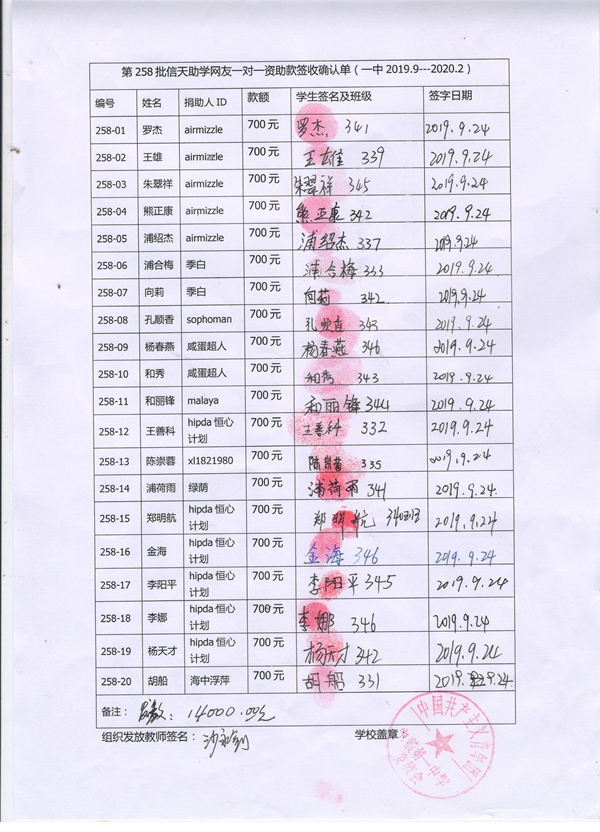 第258批信天助学网友一对一资助款签收确认单（一中2019.9---2020.2）
编号 姓名 捐助人ID 款额 学生签名及班级 签字日期
258-01 罗杰 airmizzle 700元 罗杰 341 2019.9.24
258-02 王雄 airmizzle 700元 王雄 339 2019.9.24
258-03 朱翠祥 airmizzle 700元 朱翠祥 345 2019.9.24
258-04 熊正康 airmizzle 700元 熊正康 342 2019.9.24
258-05 浦绍杰 airmizzle 700元 浦绍杰 337 2019.9.24
258-06 浦合梅 季白 700元 浦合梅 333 2019.9.24
258-07 向莉 季白 700元 向莉 342 2019.9.24
258-08 孔顺香 sophoman 700元 孔顺香 343 2019.9.24
258-09 杨春燕 咸蛋超人 700元 杨春燕 346 2019.9.24
258-10 和秀 咸蛋超人 700元 和秀 343 2019.9.24
258-11 和丽锋 malaya 700元 和丽锋 344 2019.9.24
258-12 王善科 hipda恒心计划 700元 王善科 332 2019.9.24
258-13 陈崇蓉 xl1821980 700元 陈崇蓉 335 2019.9.24
258-14 浦荷雨 绿荫 700元 浦荷雨 341 2019.9.24
258-15 郑明航 hipda恒心计划 700元 郑明航 340班 2019.9.24
258-16 金海 hipda恒心计划 700元 金海 346 2019.9.24
258-17 李阳平 hipda恒心计划 700元 李阳平 345 2019.9.24
258-18 李娜 hipda恒心计划 700元 李娜 346 2019.9.24
258-19 杨天才 hipda恒心计划 700元 杨天才 342 2019.9.24
258-20 胡船 海中浮萍 700元 胡船 331 2019.9.24
备注： 14000.00元
组织发放教师签名： 学校盖章
中国共产主义青年团